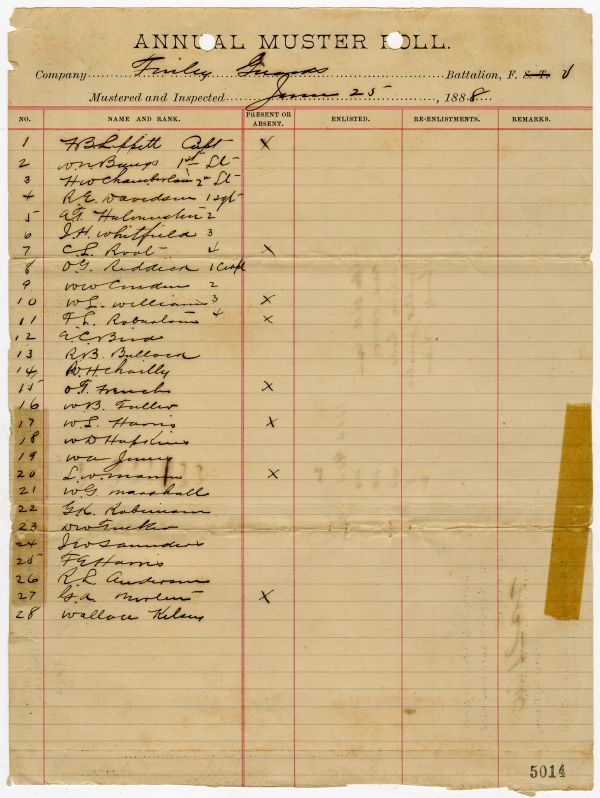 ANNUAL MUSTER ROLL.
Company Finley Guards Battalion, F. S. T.
Mustered and Inspected June 25, 1888.
NO. NAME AND RANK. PRESENT OR ABSENT. ENLISTED. RE-ENLISTMENTS. REMARKS.
1 F B Lippitt Capt X
2 1st Lt
3 H W Chamberlain 2" Lt
4 R. E. Davidson 1 Sgt
5 2
6 J. H. Whitfield 3
7 C. L. Root 4 X
8 O. G. Reddick 1 Corpl
9 2
10 W L. Williams 3 X
11 F. L. Robertson 4 X
12 E. C. Bird
13 R. B. Bullock
14
15 O. T. French X
16 W. B. Fuller
17 W. L. Harris X
18 W D Hopkins
19 W A
20 L. W. X
21 W G Marshall
22 G. K. Robinson
23
24 Saunders
25 F E Harris
26 R. L. Anderson
27 X
28 Wallace Kelsey
5014